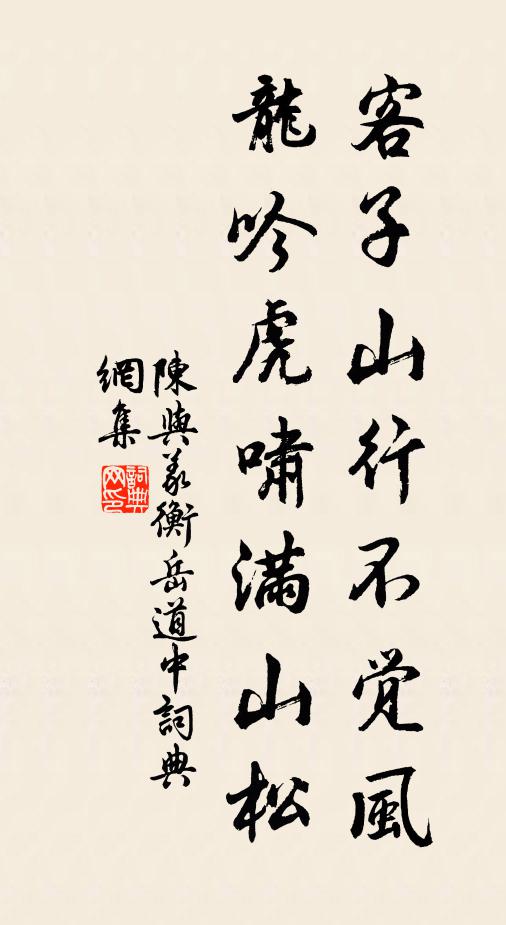 客子山行不觉風
龍吟虎嘯满山松
陳與義衡岳道中詞典
網集
詞典網印